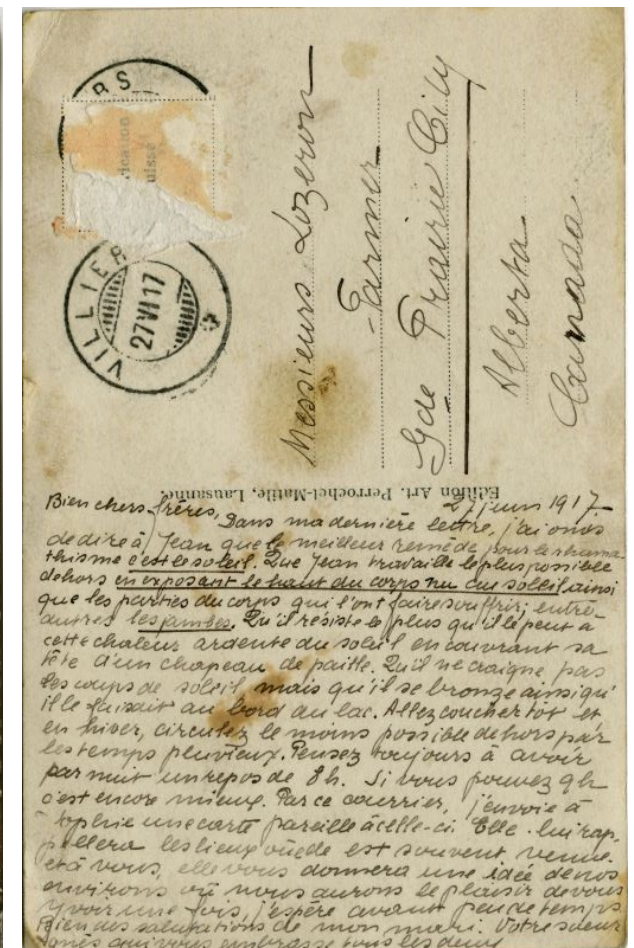 VILLIERS
27 VI 17
Messieurs Lozeron
Farmer
Gde Prairie City
Alberta
Canada
Edition Art. Perrochet-Matile, Lausanne.
27 juin 1917.
Bien chers frères,
Dans ma dernière lettre, j'ai omis
de dire à Jean que le meilleur remède pour le rhuma-
thisme c'est le soleil. Que Jean travaille le plus possible
dehors en exposant le haut du corps nu au soleil ainsi
que les parties du corps qui l'ont faire souffrir; entre-
autres les jambes. Qu'il resiste le plus qu'il le peut à
cette chaleur ardente du soleil en couvrant sa
tête d'un chapeau de paille. Qu'il ne craigne pas
les coups de soleil mais qu'il se bronze ainsi qu'
il le faisait au bord du lac. Allez coucher tôt et
en hiver, circulez le moins possible dehors par
les temps pluvieux. Pensez toujours à avoir
par nuit un repos de 8 h. Si vous pouvez 9 h
c'est encore mieux. Par ce courrier, j'envoie à
Sophie une carte pareille à celle-ci. Elle lui rap-
pellera les lieux où elle est souvent venue
et à vous, elle vous donnera une idée de nos
environs où nous aurons le plaisir de vous
y voir une fois, j'espère avant peu de temps
Bien des salutations de mon mari. Votre soeur
qui vous embrasse tous les deux